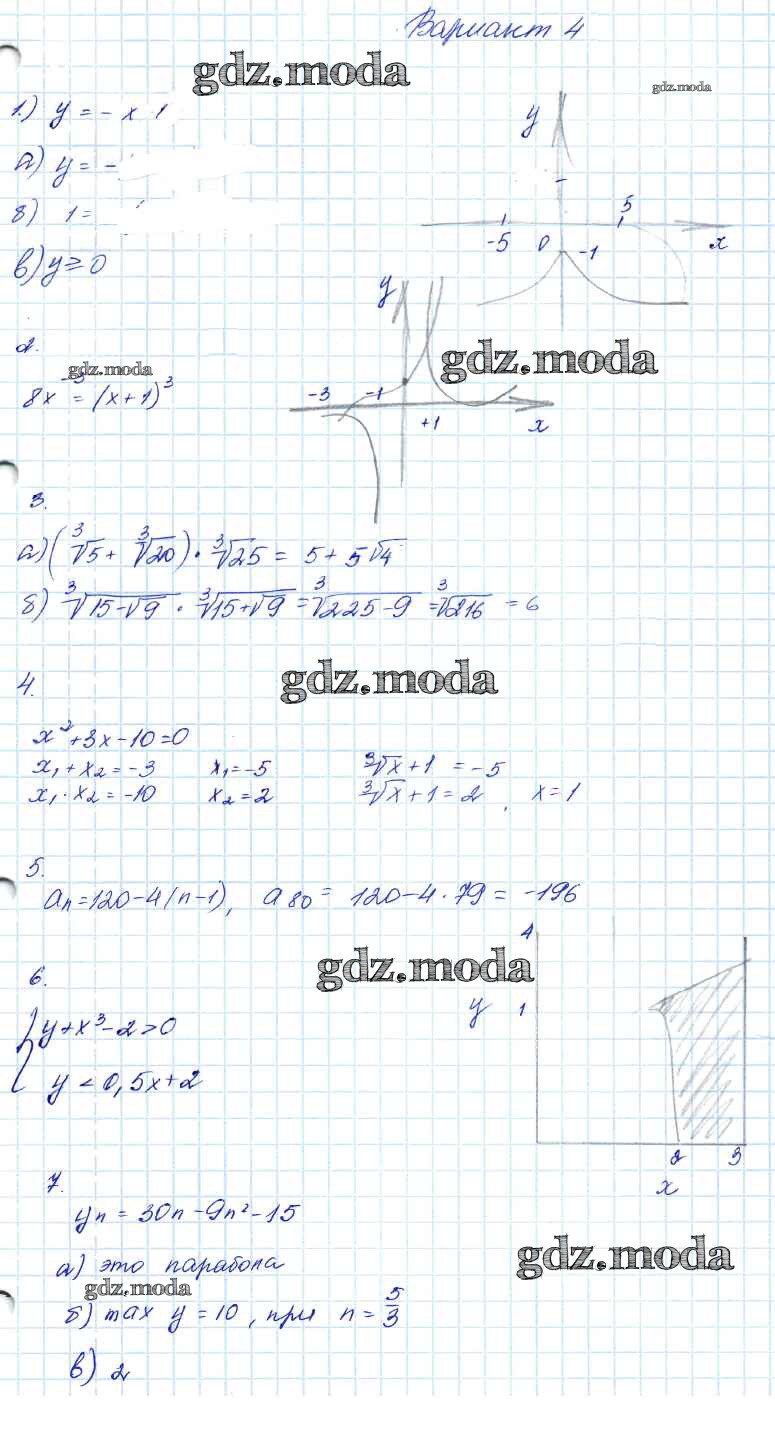 Вариант 4
gdz.moda
gdz.moda
1.) y = - x 1
а) y = -
б) 1 =
в) y ≥ 0
y
5
-5 0 -1 x
y
-3 -1 +1 x
2.
gdz.moda
gdz.moda
8x⁻³ = (x+1)³
3.
а) (∛5 + ∛20) · ∛25 = 5 + 5√4
б) ∛(15-√9) · ∛(15+√9) = ∛(225-9) = ∛216 = 6
gdz.moda
4.
x²+3x-10=0
x₁+x₂=-3 x₁=-5 ∛x+1 = -5
x₁·x₂=-10 x₂=2 ∛x+1=2, x=1
5.
aₙ=120-4(n-1), a₈₀= 120-4·79 = -196
gdz.moda
6.
{ y+x³-2>0
y < 0,5x+2
4
y 1
2 3
x
7.
yₙ = 30n-9n²-15
gdz.moda
а) это парабола
gdz.moda
б) max y = 10, при n = 5/3
в) 2